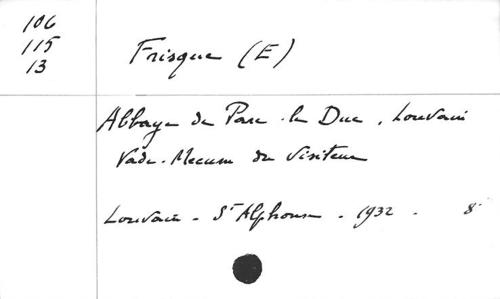 106
115
13
Frisque (E)
Abbaye de Parc-le Duc, Louvain
Vade-Mecum du visiteur
Louvain - St Alphonse - 1932 - 8°